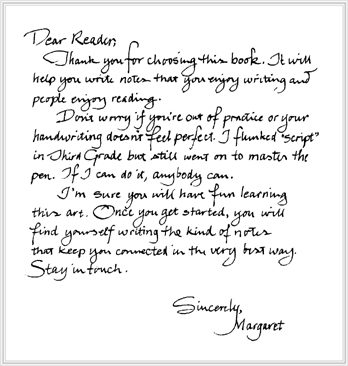 Dear Reader,
Thank you for choosing this book. It will
help you write notes that you enjoy writing, and
people enjoy reading.
Don't worry if you're out of practice or your
handwriting doesn't feel perfect. I flunked "script"
in Third Grade but still went on to master the
pen. If I can do it, anybody can.
I'm sure you will have fun learning
this art. Once you get started, you will
find yourself writing the kind of notes
that keep you connected in the very best way.
Stay in touch.
Sincerely,
Margaret